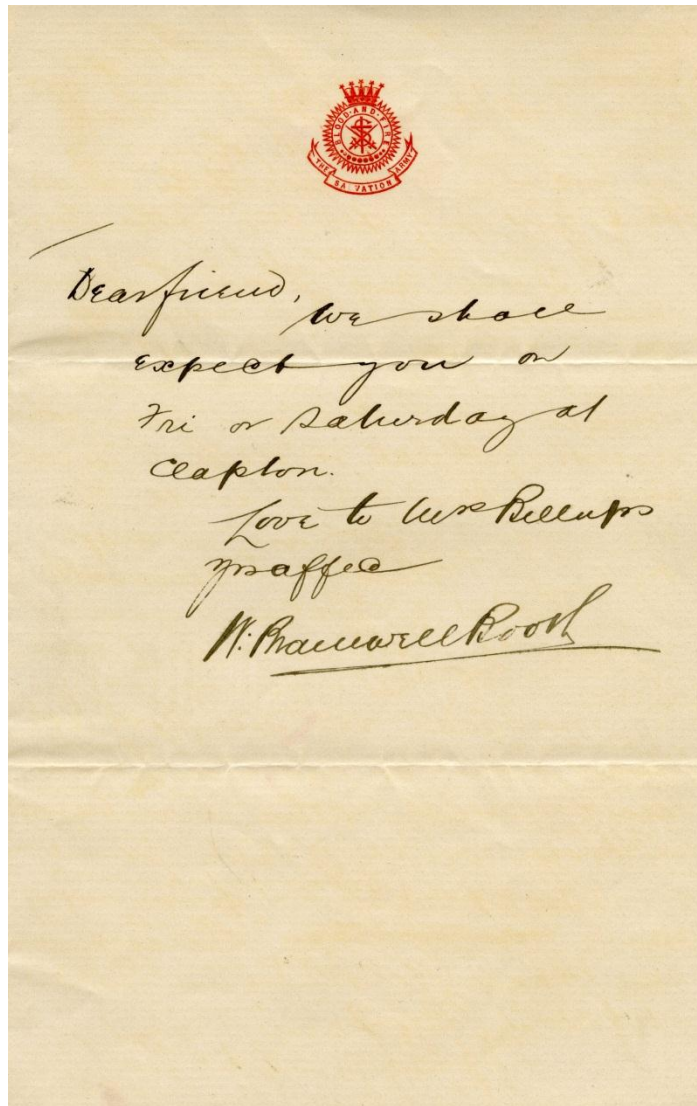 BLOOD·AND·FIRE
THE SA VATION ARMY
Dear friend,
We shall
expect you on
Fri or Saturday at
Clapton.
Love to Mrs Billups
Yrs affec
W. Bramwell Booth